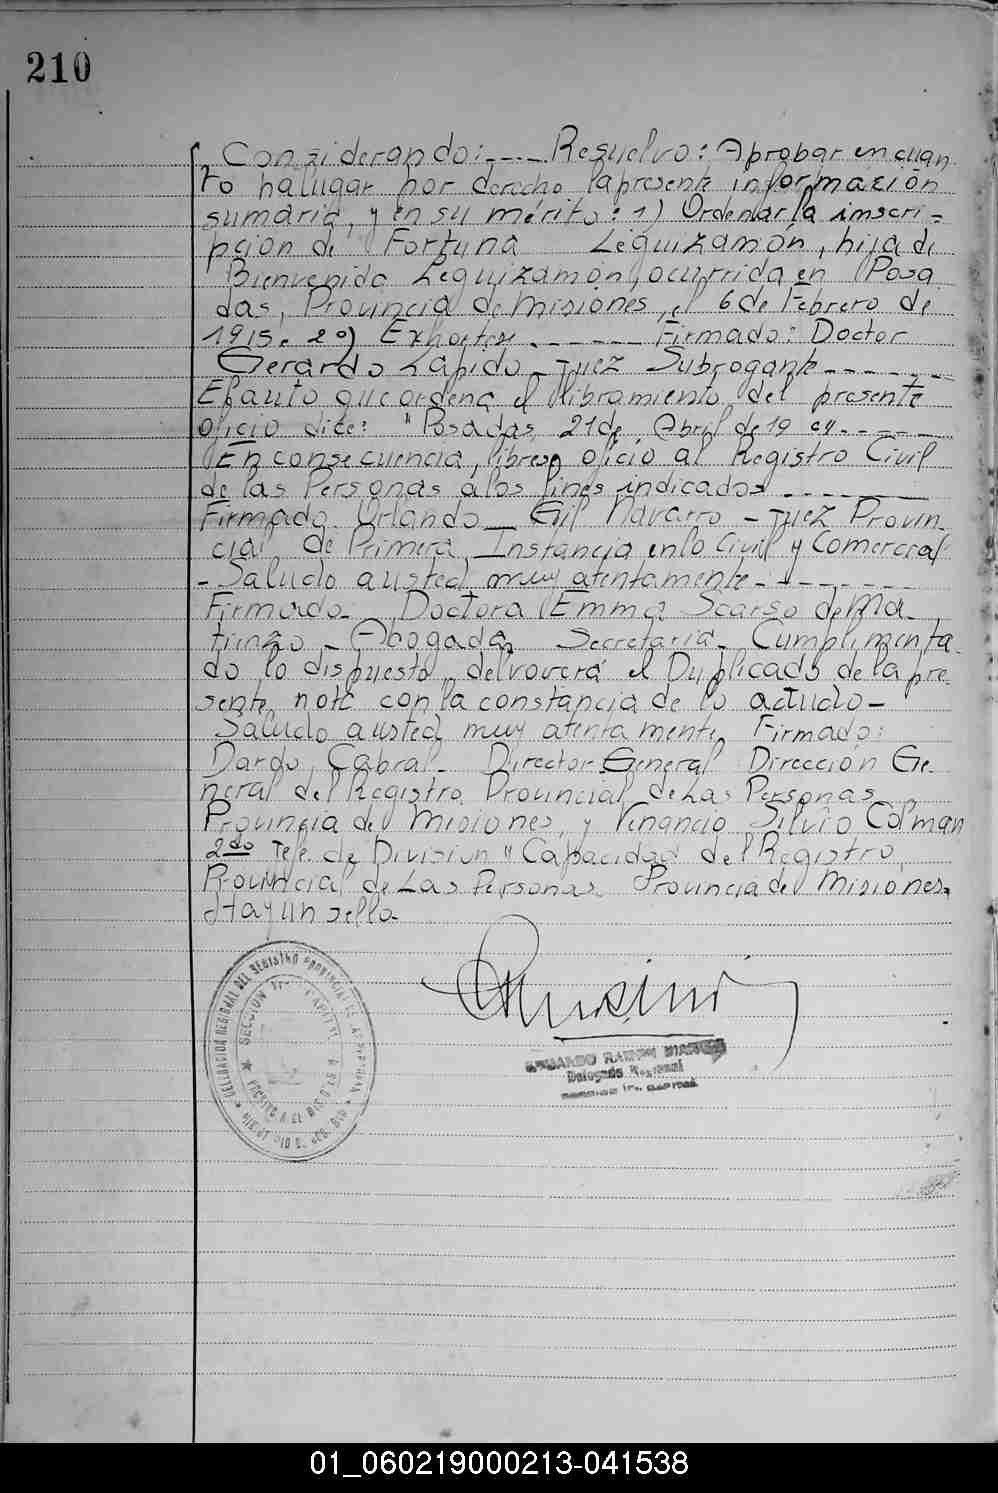 210
Considerando:---- Resuelvo: Aprobar en cuan
to ha lugar por derecho la presente información
sumaria, y en su mérito: 1) Ordenar la inscri-
pcion de Fortuna Leguizamón, hija de
Bienvenida Leguizamón, ocurrida en Posa
das, Provincia de Misiones, el 6 de Febrero de
1915. 2º) Firmado: Doctor
Gerardo Lapido - Juez Subrogante------
El auto que ordena el libramiento del presente
oficio dice: "Posadas 21 de Abril de 19
En consecuencia, librese oficio al Registro Civil
de las Personas a los fines indicados------
Firmado. Orlando Gil Navarro - Juez Provin-
cial de Primera Instancia en lo Civil y Comercial
- Saludo a usted muy atentamente-------
Firmado- Doctora Emma Scarso de Ma
- Abogada Secretaria- Cumplimenta
do lo dispuesto, delvoverá el Duplicado de la pre
sente note con la constancia de lo actudo-
Saludo a usted muy atenta mente, Firmado:
Dardo, Cabral- Director General Dirección Ge-
neral del Registro Provincial de Las Personas
Provincia de Misiones, y Venancio Silvio Colman
2do Jefe de Division "Capacidad del Registro
Provincial de Las Personas Provincia de Misiones.
Hay un sello-
DELEGACION REGIONAL DEL REGISTRO PROVINCIAL DE LAS PERSONAS
SECCION
RAMON
Delegado Regional
01_060219000213-041538